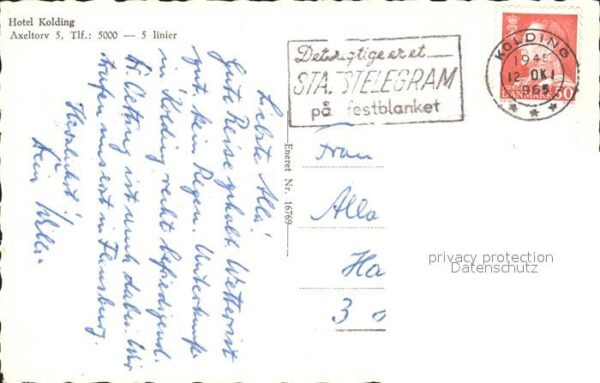 Hotel Kolding
Axeltorv 5, Tlf.: 5000 — 5 linier
Det rigtige er et
STATSTELEGRAM
på festblanket
KOLDING
1945
12 OKT
1965
DANMARK 50
Eneret Nr. 16769
Liebste Alla!
Gute Reise gehabt. Wetter ist
gut, kein Regen. Unterkunft
in Kolding recht befriedigend.
H. Oetting ist auch dabei. Wir
trafen uns erst in Flensburg.
Herzlichst
Dein Willi
Frau
Alla
Ha
3
privacy protection
Datenschutz